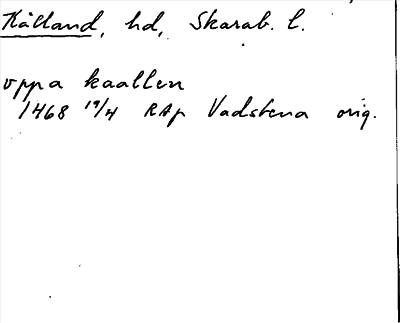 Kålland, hd, Skarab. l.
vppa kaallen
1468 19/4 RAp Vadstena orig.